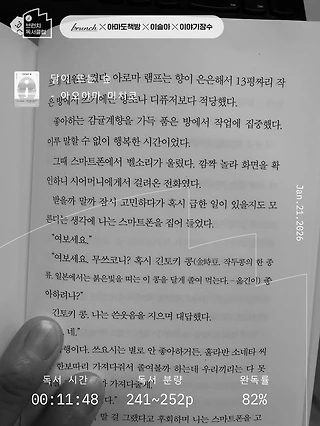 브런치
독서클럽
brunch × 아마도책방 × 이슬아 × 이야기장수
아로마 램프는 향이 은은해서 13평짜리 작
디퓨저보다 적당했다.
좋아하는 감귤계향을 가득 품은 방에서 작업에 집중했다.
이루 말할 수 없이 행복한 시간이었다.
그때 스마트폰에서 벨소리가 울렸다. 깜짝 놀라 화면을 확
인하니 시어머니에게서 걸려온 전화였다.
받을까 말까 잠시 고민하다가 혹시 급한 일이 있을지도 모
른다는 생각에 나는 스마트폰을 집어 들었다.
"여보세요."
"여보세요, 무쓰코니? 혹시 긴토키 콩(金時豆, 작두콩의 한 종
류. 일본에서는 붉은빛을 띠는 이 콩을 달게 졸여 먹는다.—옮긴이) 좋
아하려나?"
긴토키 콩, 나는 쓴웃음을 지으며 대답했다.
네."
행이다. 쓰요시는 별로 안 좋아하거든. 홀라반 소네타 씨
한보따리 가져다줘서 줄여볼까 하는데 우리끼리는 다 못
가져다줄게."
말 걸 그랬다고 후회하며 나는 스마트폰을 고
Jan.21.2026
독서 시간
독서 분량
완독률
00:11:48
241~252p
82%